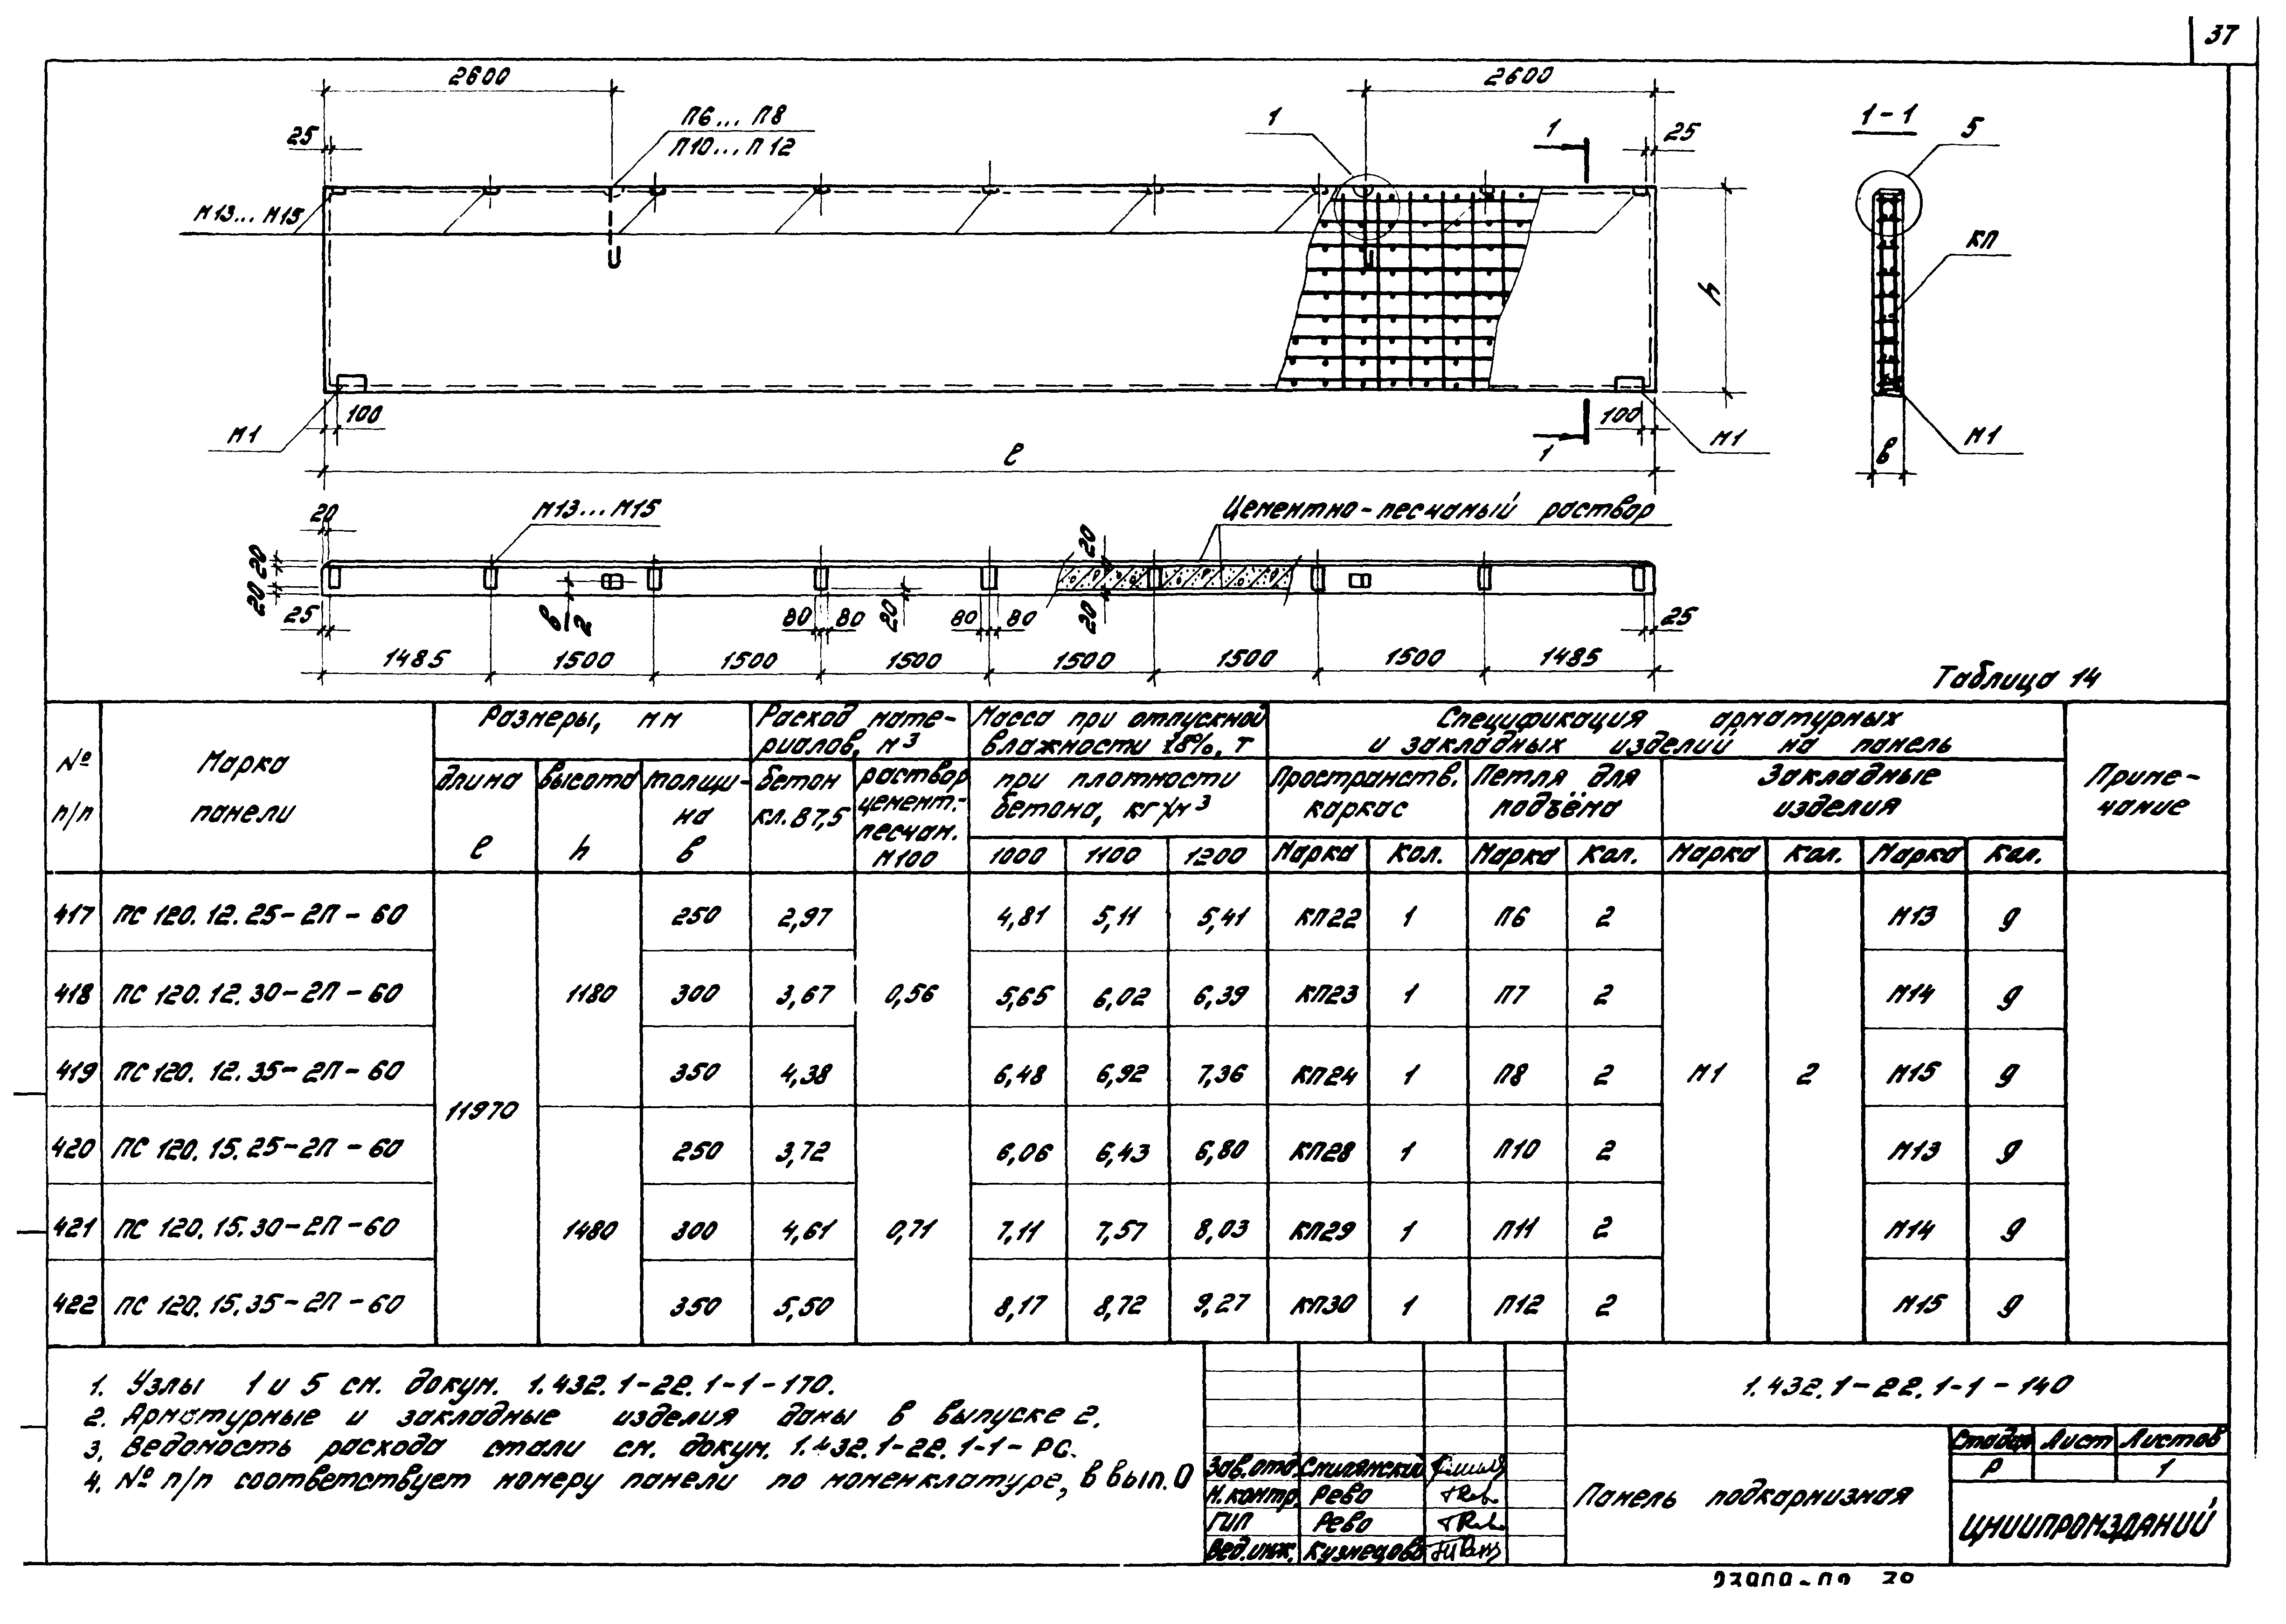 37
2600
2600
П6... П8
П10...П12
1
1
1-1
5
25
25
М13...М15
h
КП
100
100
М1
М1
М1
1
в
ℓ
20
М13...М15
Цементно-песчаный раствор
20
20
20
20
20
25
в/2
80
80
80
80
25
1485
1500
1500
1500
1500
1500
1500
1485
Таблица 14
№ п/п
Марка панели
Размеры, мм
длина ℓ
высота h
толщина в
Расход материалов, м³
бетон кл. В7,5
раствор цемент.-песчан. М100
Масса при отпускной влажности 18%, т
при плотности бетона, кг/м³
1000 1100 1200
Спецификация арматурных и закладных изделий на панель
Пространств. каркас
Петля для подъёма
Закладные изделия
Марка Кол. Марка Кол. Марка Кол. Марка Кол.
Примечание
417 ПС 120.12.25-2П-60 250 2,97 4,81 5,11 5,41 КП22 1 П6 2 М13 9
418 ПС 120.12.30-2П-60 1180 300 3,67 0,56 5,65 6,02 6,39 КП23 1 П7 2 М14 9
419 ПС 120.12.35-2П-60 350 4,38 6,48 6,92 7,36 КП24 1 П8 2 М1 2 М15 9
11970
420 ПС 120.15.25-2П-60 250 3,72 6,06 6,43 6,80 КП28 1 П10 2 М13 9
421 ПС 120.15.30-2П-60 1480 300 4,61 0,71 7,11 7,57 8,03 КП29 1 П11 2 М14 9
422 ПС 120.15.35-2П-60 350 5,50 8,17 8,72 9,27 КП30 1 П12 2 М15 9
1. Узлы 1 и 5 см. докум. 1.432.1-22.1-1-170.
2. Арматурные и закладные изделия даны в выпуске 2.
3. Ведомость расхода стали см. докум. 1.432.1-22.1-1-РС.
4. № п/п соответствует номеру панели по номенклатуре, в вып. 0
1.432.1-22.1-1-140
Зав.отд. Смилянский
Н.контр. Рево
ГИП Рево
Вед.инж. Кузнецова
Панель подкарнизная
Стадия Лист Листов
Р 1
ЦНИИПРОМЗДАНИЙ